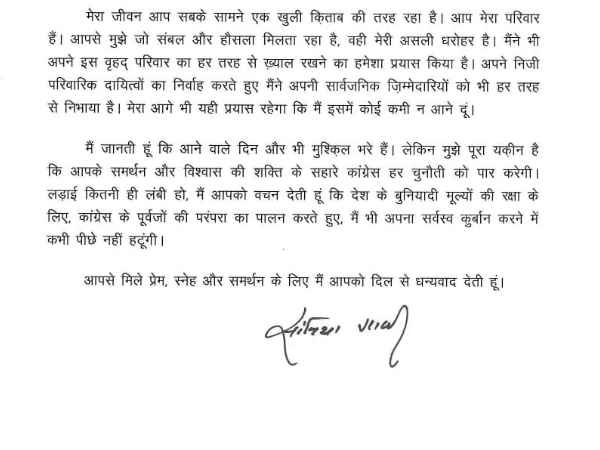 मेरा जीवन आप सबके सामने एक खुली क़िताब की तरह रहा है। आप मेरा परिवार
हैं। आपसे मुझे जो संबल और हौसला मिलता रहा है, वही मेरी असली धरोहर है। मैंने भी
अपने इस वृहद् परिवार का हर तरह से ख़्याल रखने का हमेशा प्रयास किया है। अपने निजी
परिवारिक दायित्वों का निर्वाह करते हुए मैंने अपनी सार्वजनिक ज़िम्मेदारियों को भी हर तरह
से निभाया है। मेरा आगे भी यही प्रयास रहेगा कि मैं इसमें कोई कमी न आने दूं।
मैं जानती हूं कि आने वाले दिन और भी मुश्क़िल भरे हैं। लेकिन मुझे पूरा यक़ीन है
कि आपके समर्थन और विश्वास की शक्ति के सहारे कांग्रेस हर चुनौती को पार करेगी।
लड़ाई कितनी ही लंबी हो, मैं आपको वचन देती हूं कि देश के बुनियादी मूल्यों की रक्षा के
लिए, कांग्रेस के पूर्वजों की परंपरा का पालन करते हुए, मैं भी अपना सर्वस्व क़ुर्बान करने में
कभी पीछे नहीं हटूंगी।
आपसे मिले प्रेम, स्नेह और समर्थन के लिए मैं आपको दिल से धन्यवाद देती हूं।
सोनिया गांधी